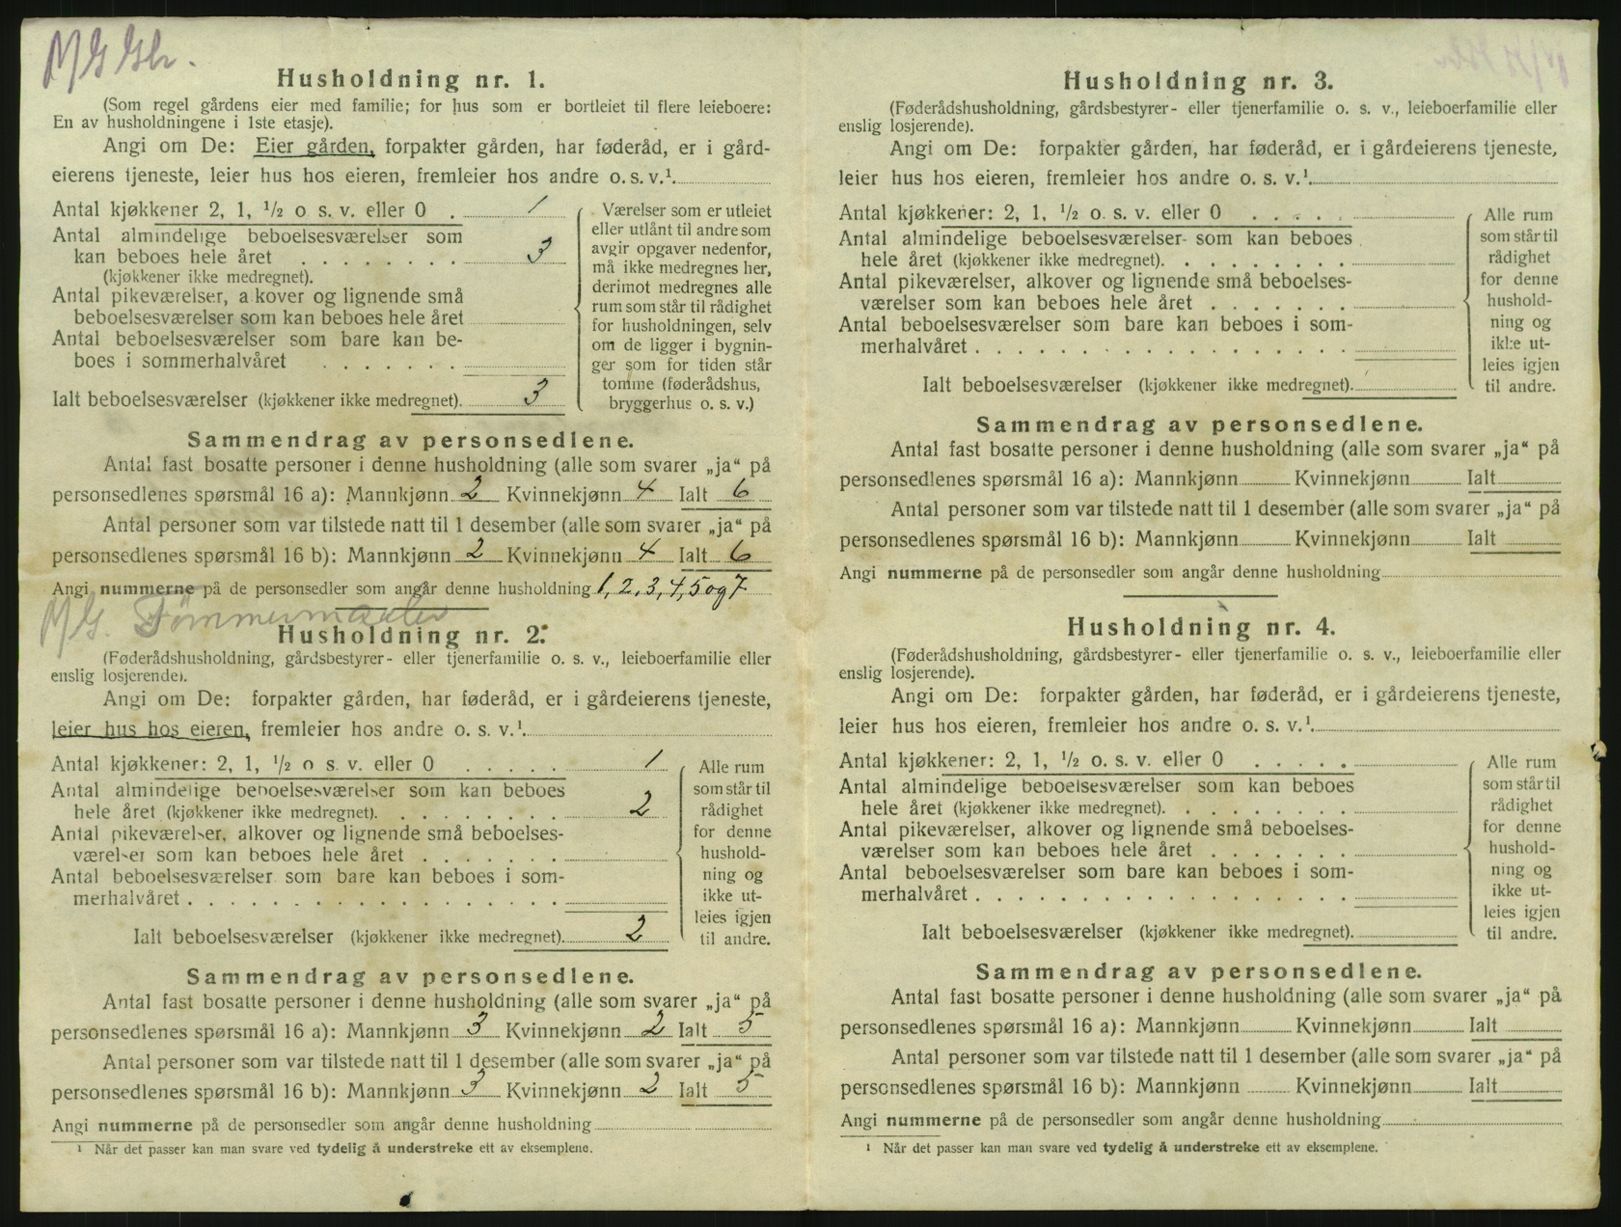 Husholdning nr. 1.
(Som regel gårdens eier med familie; for hus som er bortleiet til flere leieboere:
En av husholdningene i 1ste etasje).
Angi om De: Eier gården, forpakter gården, har føderåd, er i gård-
eierens tjeneste, leier hus hos eieren, fremleier hos andre o. s. v.¹.
Antal kjøkkener 2, 1, ½ o s. v. eller 0 . 1
Antal almindelige beboelsesværelser som
kan beboes hele året . . . . . . . . 3
(kjøkkener ikke medregnet).
Antal pikeværelser, alkover og lignende små
beboelsesværelser som kan beboes hele året
Antal beboelsesværelser som bare kan be-
boes i sommerhalvåret . . . . . . .
Ialt beboelsesværelser (kjøkkener ikke medregnet). 3
Værelser som er utleiet
eller utlånt til andre som
avgir opgaver nedenfor,
må ikke medregnes her,
derimot medregnes alle
rum som står til rådighet
for husholdningen, selv
om de ligger i bygnin-
ger som for tiden står
tomme (føderådshus,
bryggerhus o. s. v.)
Sammendrag av personsedlene.
Antal fast bosatte personer i denne husholdning (alle som svarer „ja“ på
personsedlenes spørsmål 16 a): Mannkjønn 2 Kvinnekjønn 4 Ialt 6
Antal personer som var tilstede natt til 1 desember (alle som svarer „ja“ på
personsedlenes spørsmål 16 b): Mannkjønn 2 Kvinnekjønn 4 Ialt 6
Angi nummerne på de personsedler som angår denne husholdning 1, 2, 3, 4, 5 og 7
Tømmermaaler
Husholdning nr. 2.
(Føderådshusholdning, gårdsbestyrer- eller tjenerfamilie o. s. v., leieboerfamilie eller
enslig losjerende).
Angi om De: forpakter gården, har føderåd, er i gårdeierens tjeneste,
leier hus hos eieren, fremleier hos andre o. s. v.¹.
Antal kjøkkener: 2, 1, ½ o s. v. eller 0 . . . . . 1
Antal almindelige beboelsesværelser som kan beboes
hele året (kjøkkener ikke medregnet). . . . . . . . . 2
Antal pikeværelser, alkover og lignende små beboelses-
værelser som kan beboes hele året . . . . . . .
Antal beboelsesværelser som bare kan beboes i som-
merhalvåret . . . . . . . . . . . . . . . . . .
Ialt beboelsesværelser (kjøkkener ikke medregnet). 2
Alle rum
som står til
rådighet
for denne
hushold-
ning og
ikke ut-
leies igjen
til andre.
Sammendrag av personsedlene.
Antal fast bosatte personer i denne husholdning (alle som svarer „ja“ på
personsedlenes spørsmål 16 a): Mannkjønn 3 Kvinnekjønn 2 Ialt 5
Antal personer som var tilstede natt til 1 desember (alle som svarer „ja“ på
personsedlenes spørsmål 16 b): Mannkjønn 3 Kvinnekjønn 2 Ialt 5
Angi nummerne på de personsedler som angår denne husholdning
¹ Når det passer kan man svare ved tydelig å understreke ett av eksemplene.
Husholdning nr. 3.
(Føderådshusholdning, gårdsbestyrer- eller tjenerfamilie o. s. v., leieboerfamilie eller
enslig losjerende).
Angi om De: forpakter gården, har føderåd, er i gårdeierens tjeneste,
leier hus hos eieren, fremleier hos andre o. s. v.¹.
Antal kjøkkener: 2, 1, ½ o. s. v. eller 0 . . . . .
Antal almindelige beboelsesværelser som kan beboes
hele året (kjøkkener ikke medregnet). . . . . . . . .
Antal pikeværelser, alkover og lignende små beboelses-
værelser som kan beboes hele året . . . . . . .
Antal beboelsesværelser som bare kan beboes i som-
merhalvåret . . . . . . . . . . . . . . . . . .
Ialt beboelsesværelser (kjøkkener ikke medregnet).
Alle rum
som står til
rådighet
for denne
hushold-
ning og
ikke ut-
leies igjen
til andre.
Sammendrag av personsedlene.
Antal fast bosatte personer i denne husholdning (alle som svarer „ja“ på
personsedlenes spørsmål 16 a): Mannkjønn Kvinnekjønn Ialt
Antal personer som var tilstede natt til 1 desember (alle som svarer „ja“ på
personsedlenes spørsmål 16 b): Mannkjønn Kvinnekjønn Ialt
Angi nummerne på de personsedler som angår denne husholdning
Husholdning nr. 4.
(Føderådshusholdning, gårdsbestyrer- eller tjenerfamilie o. s. v., leieboerfamilie eller
enslig losjerende).
Angi om De: forpakter gården, har føderåd, er i gårdeierens tjeneste,
leier hus hos eieren, fremleier hos andre o. s. v.¹.
Antal kjøkkener: 2, 1, ½ o. s. v. eller 0 . . . . .
Antal almindelige beboelsesværelser som kan beboes
hele året (kjøkkener ikke medregnet). . . . . . . . .
Antal pikeværelser, alkover og lignende små beboelses-
værelser som kan beboes hele året . . . . . . .
Antal beboelsesværelser som bare kan beboes i som-
merhalvåret . . . . . . . . . . . . . . . . . .
Ialt beboelsesværelser (kjøkkener ikke medregnet).
Alle rum
som står til
rådighet
for denne
hushold-
ning og
ikke ut-
leies igjen
til andre.
Sammendrag av personsedlene.
Antal fast bosatte personer i denne husholdning (alle som svarer „ja“ på
personsedlenes spørsmål 16 a): Mannkjønn Kvinnekjønn Ialt
Antal personer som var tilstede natt til 1 desember (alle som svarer „ja“ på
personsedlenes spørsmål 16 b): Mannkjønn Kvinnekjønn Ialt
Angi nummerne på de personsedler som angår denne husholdning
¹ Når det passer kan man svare ved tydelig å understreke ett av eksemplene.